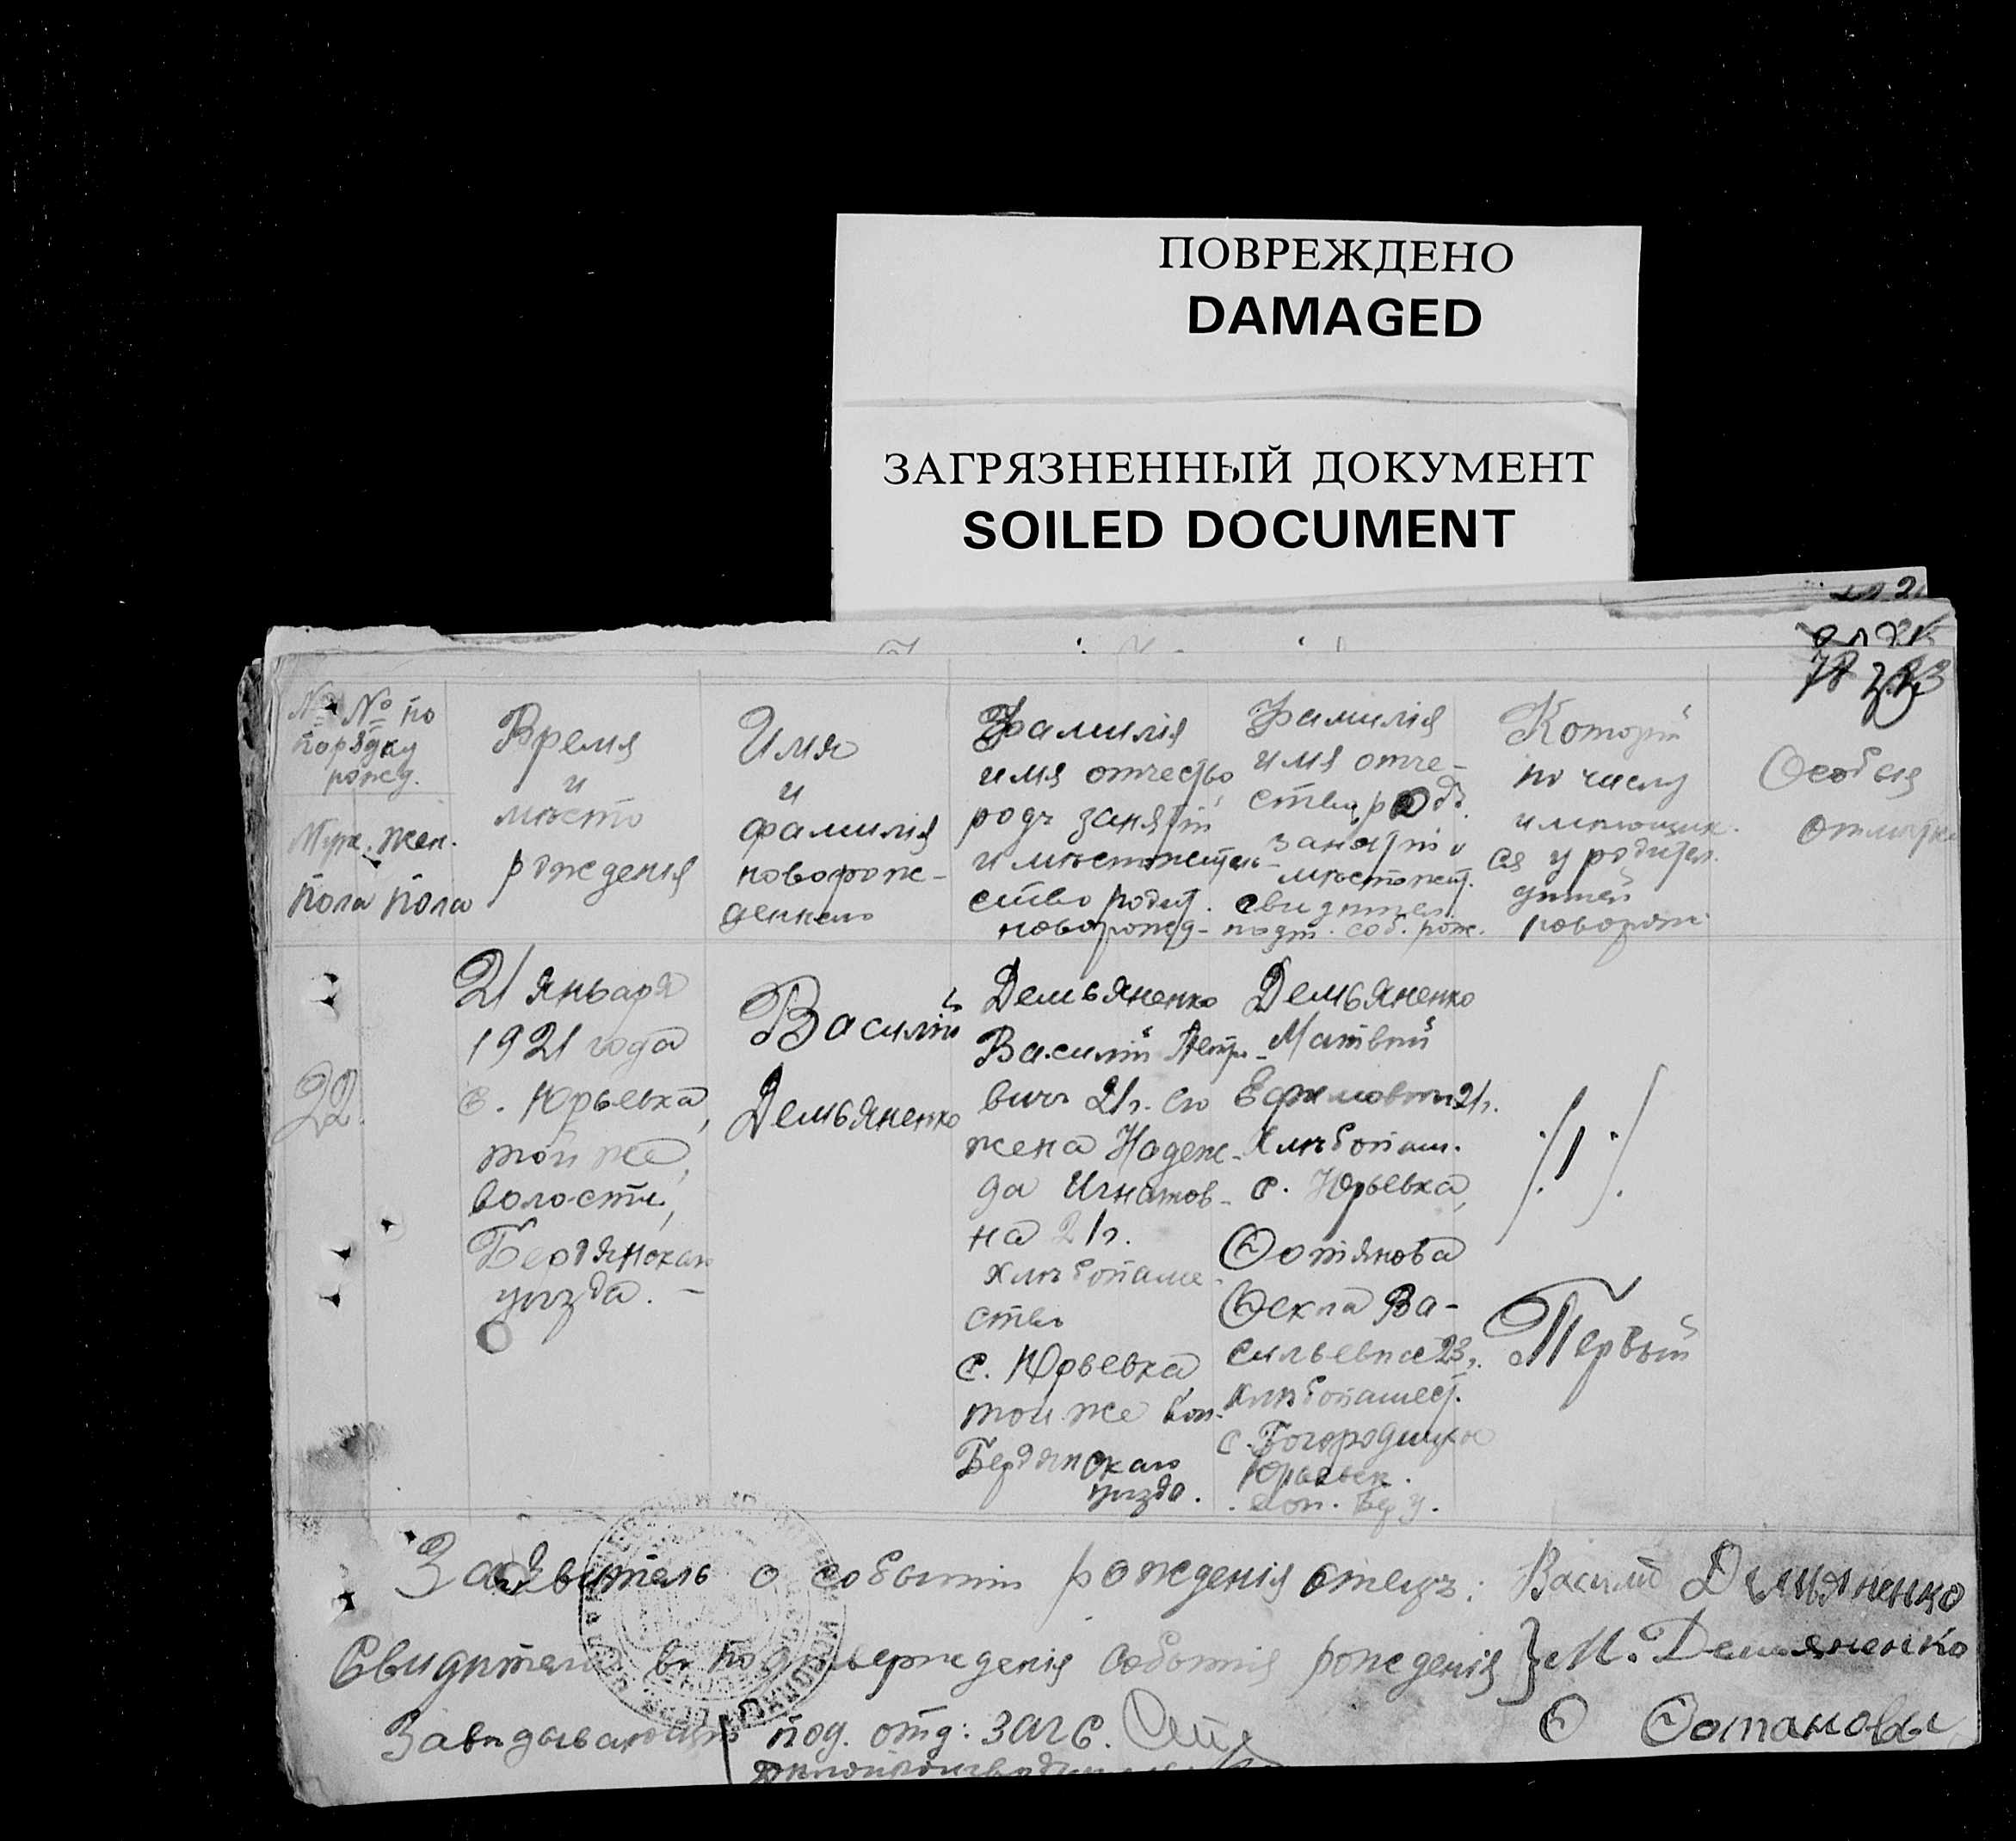 ПОВРЕЖДЕНО
DAMAGED
ЗАГРЯЗНЕННЫЙ ДОКУМЕНТ
SOILED DOCUMENT
№ № по
порядку
рожд.
Муж. Жен.
пола пола
Время
и
мѣсто
рожденія
Имя
и
фамилія
новорож-
деннаго
Фамилія
имя отчество
родъ занятій
и мѣстожитель-
ство родит.
новорожд-
Фамилія
имя отче-
ство, родъ
занятій и
мѣстожит.
свидѣтел.
подт. соб. рож.
Который
по числу
имѣющих.
ся у родител.
дѣтей
новорож.
Особыя
отмѣтки
22.
21 Января
1921 года
с. Юрьевка,
той же
волости,
Бердянскаго
уѣзда. –
Василій
Демьяненко
Демьяненко
Василій Петро-
вичъ 21г. его
жена Надеж-
да Игнатов-
на 21г.
хлѣбопаше-
ство
с. Юрьевка
той же вол.
Бердянскаго
уѣзда.
Демьяненко
Матвій
Ефимович 21г.
Хлѣбопаш.
с. Юрьевка,
Фотянова
Фекла Ва-
сильевна 23г.
хлѣбопашест.
с. Богородицкое
Юрьевск.
вол. Бер. у.
/.1./
Первый
Заявитель о событіи рожденія отецъ: Василій Демьяненко
Свидѣтели въ подтвержденія событія рожденія } М. Демьяненко
Завѣдывающій под. отд: загс.
Ѳ Ѳотановы